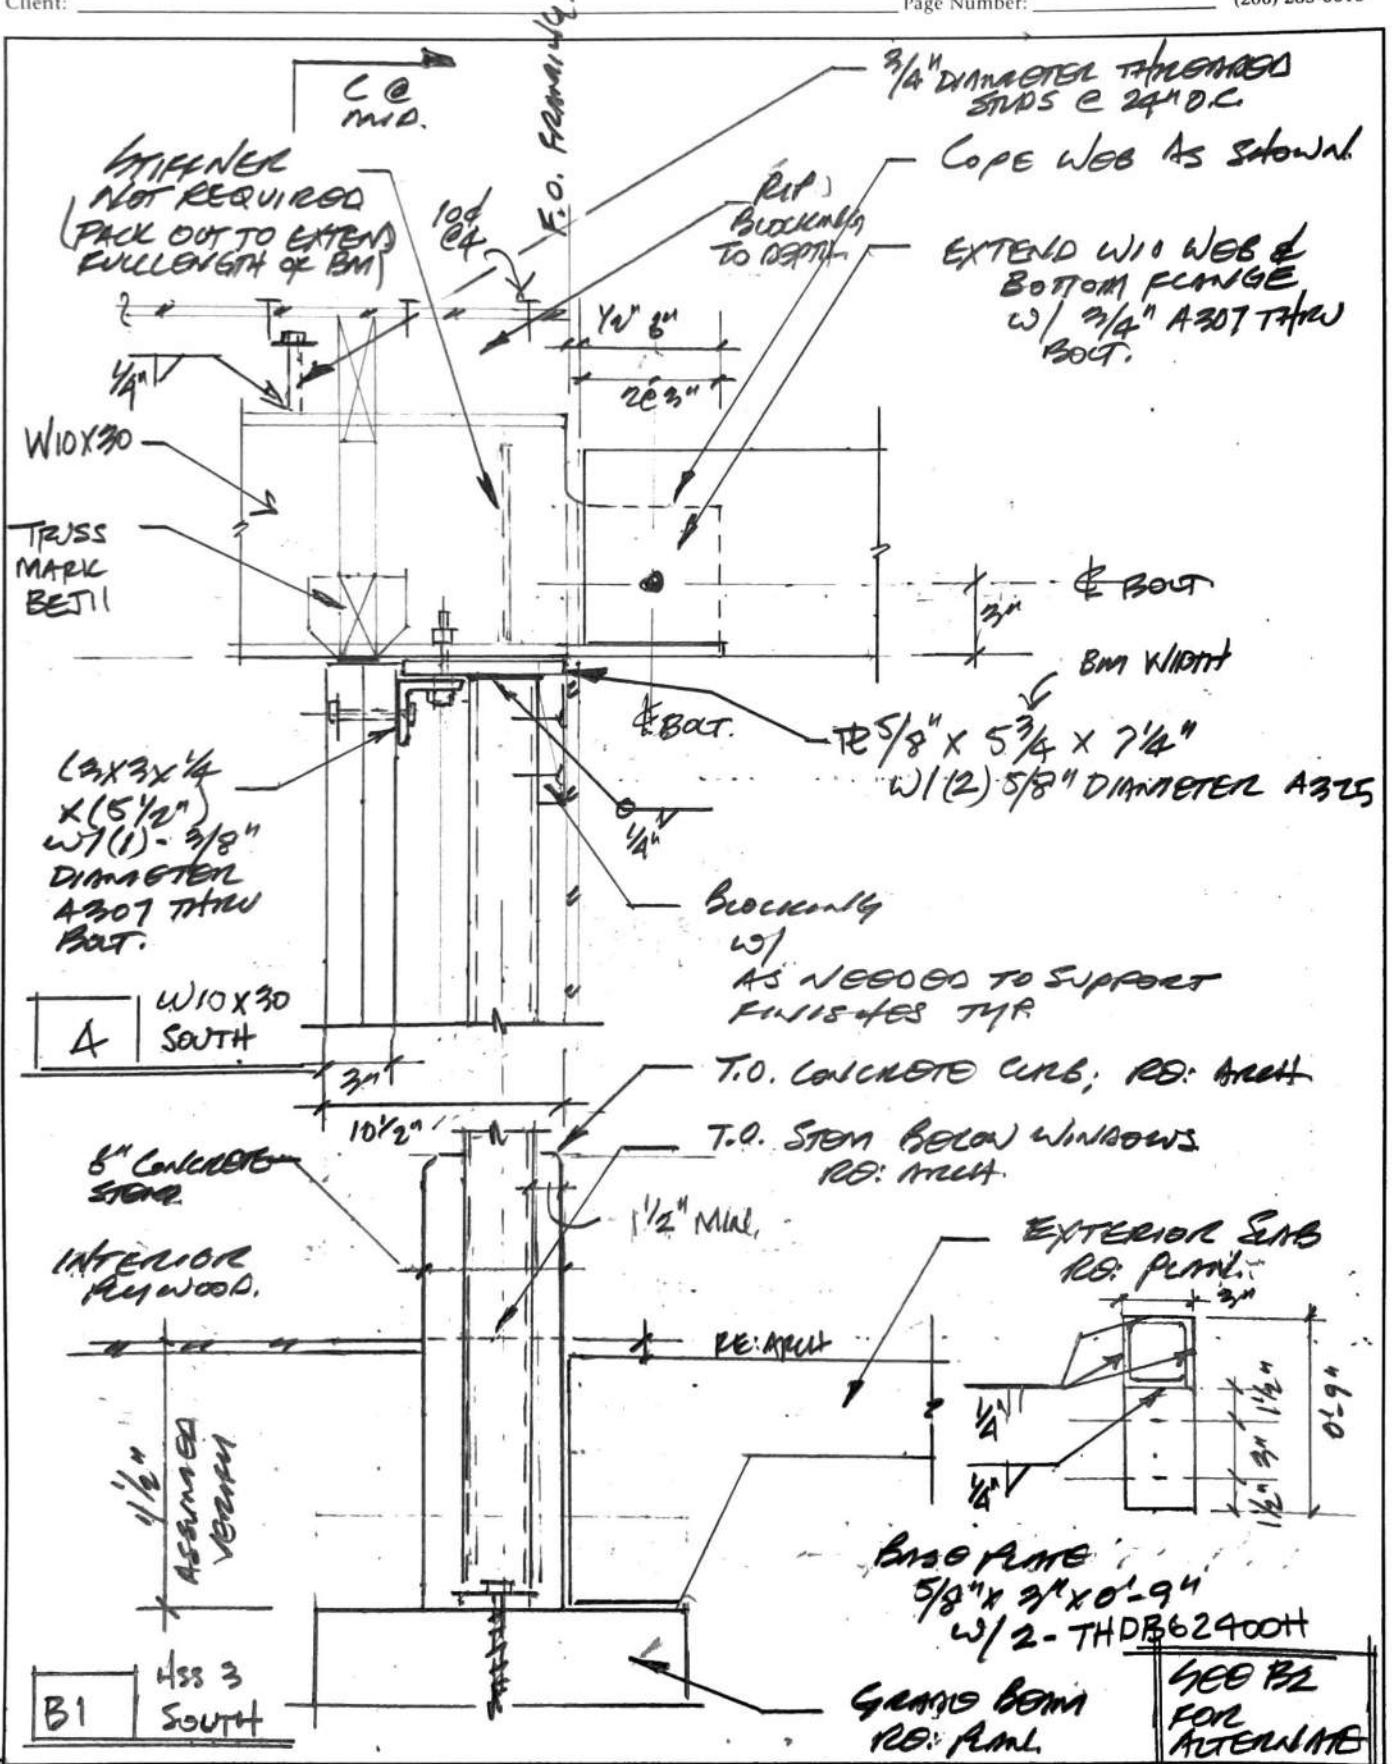 Client:
Page Number:
C @
MID.
F.O. FRAMING.
3/4" DIAMETER THREADED
STUDS @ 24" O.C.
STIFFNER
NOT REQUIRED
(PACK OUT TO EXTEND
FULL LENGTH OF BM)
10d
@4
RIP
BLOCKING
TO DEPTH
COPE WEB AS SHOWN.
EXTEND W10 WEB &
BOTTOM FLANGE
W/ 3/4" A307 THRU
BOLT.
1/2" 6"
2@3"
1/4"
W10X30
TRUSS
MARK
BEJ11
℄ BOLT
3"
BM WIDTH
℄ BOLT.
PL 5/8" X 5 3/4 X 7 1/4"
W/(2) 5/8" DIAMETER A325
L3X3X1/4
X(5 1/2")
W/(1)- 3/8"
DIAMETER
A307 THRU
BOLT.
1/4"
BLOCKING
W/
AS NEEDED TO SUPPORT
FINISHES TYP.
A
W10X30
SOUTH
3"
10 1/2"
T.O. CONCRETE CURB; RE: ARCH
T.O. STEM BELOW WINDOWS
RE: ARCH.
CONCRETE
STEM
1 1/2" MIN.
INTERIOR
PLYWOOD.
EXTERIOR SLAB
RE: PLAN.
3"
RE: ARCH
1/4"
1/4"
1 1/2"
3"
1 1/2"
0'-9"
ASSUMED
VERIFY
BASE PLATE
5/8" X 3" X 0'-9"
W/ 2- THDB62400H
B1
HSS 3
SOUTH
GRADE BEAM
RE: PLAN.
SEE B2
FOR
ALTERNATE